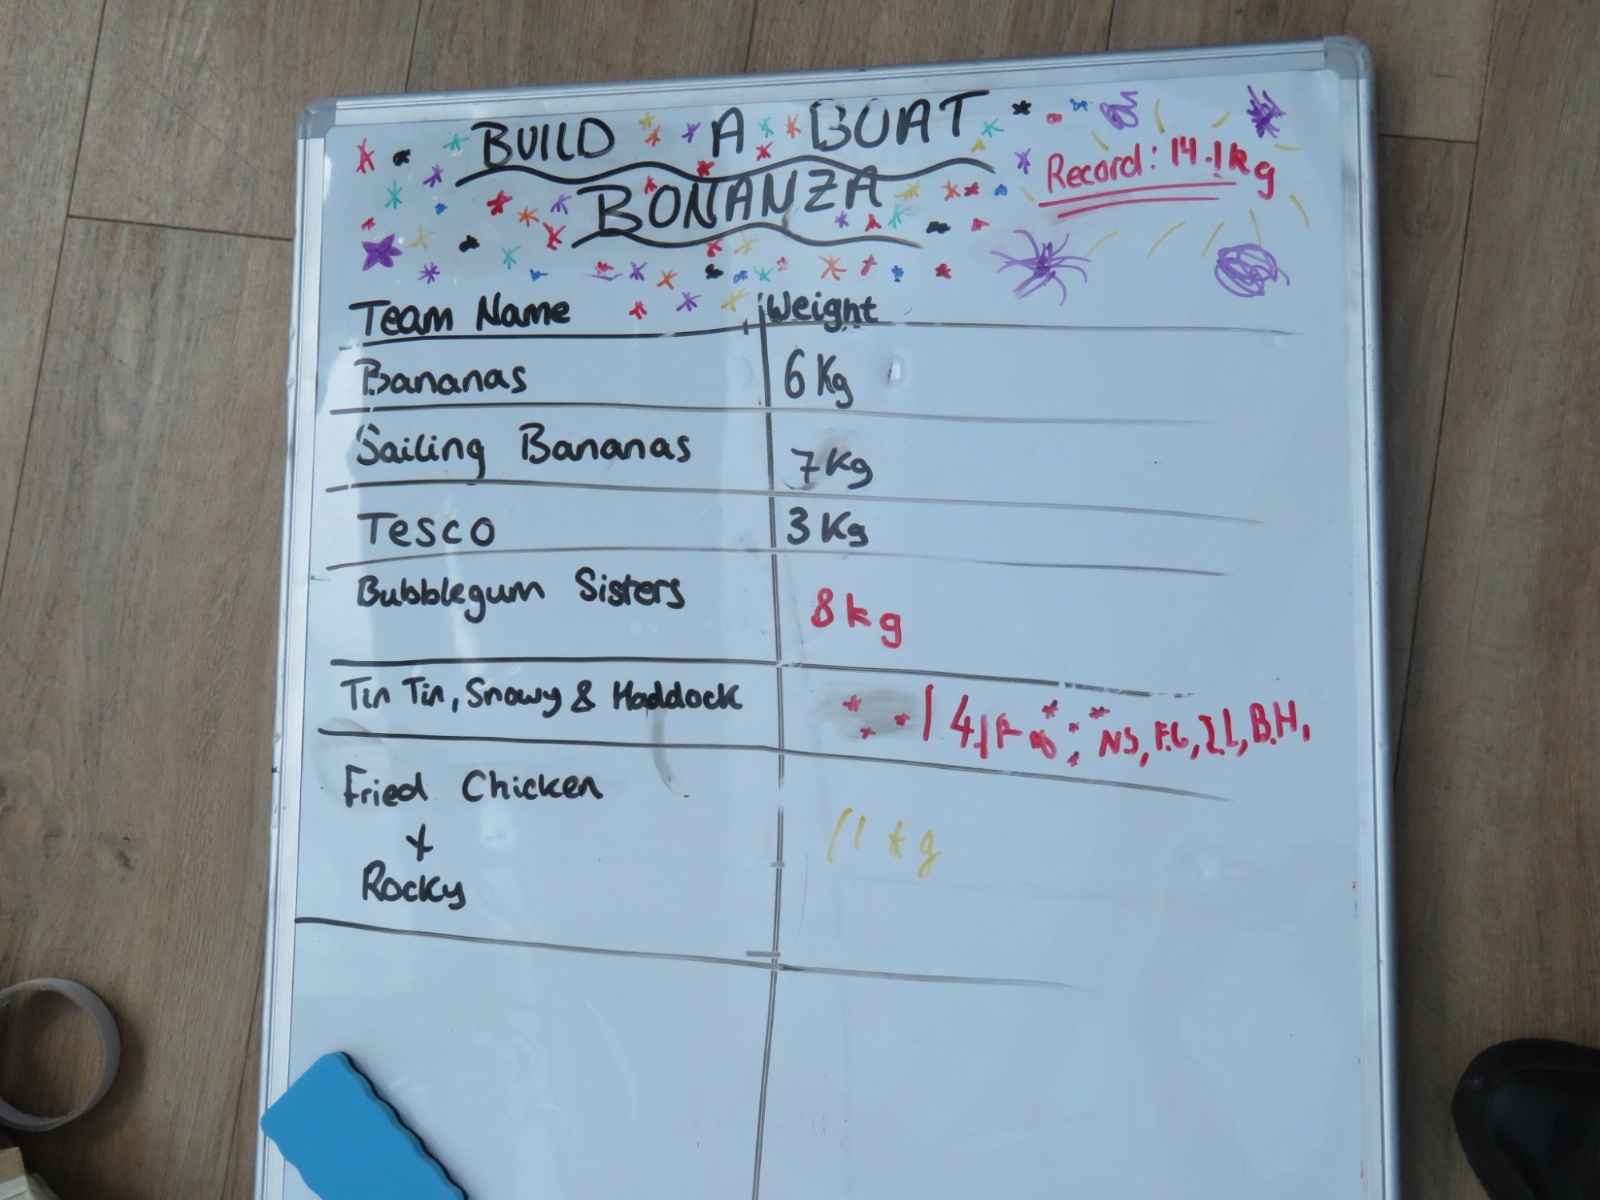 BUILD A BOAT
BONANZA
Record: 14.1kg
Team Name Weight
Bananas 6 Kg
Sailing Bananas 7 Kg
Tesco 3 Kg
Bubblegum Sisters 8kg
Tin Tin, Snowy & Haddock 14.1 NS, F.G, B.H,
Fried Chicken
+
Rocky
11 kg